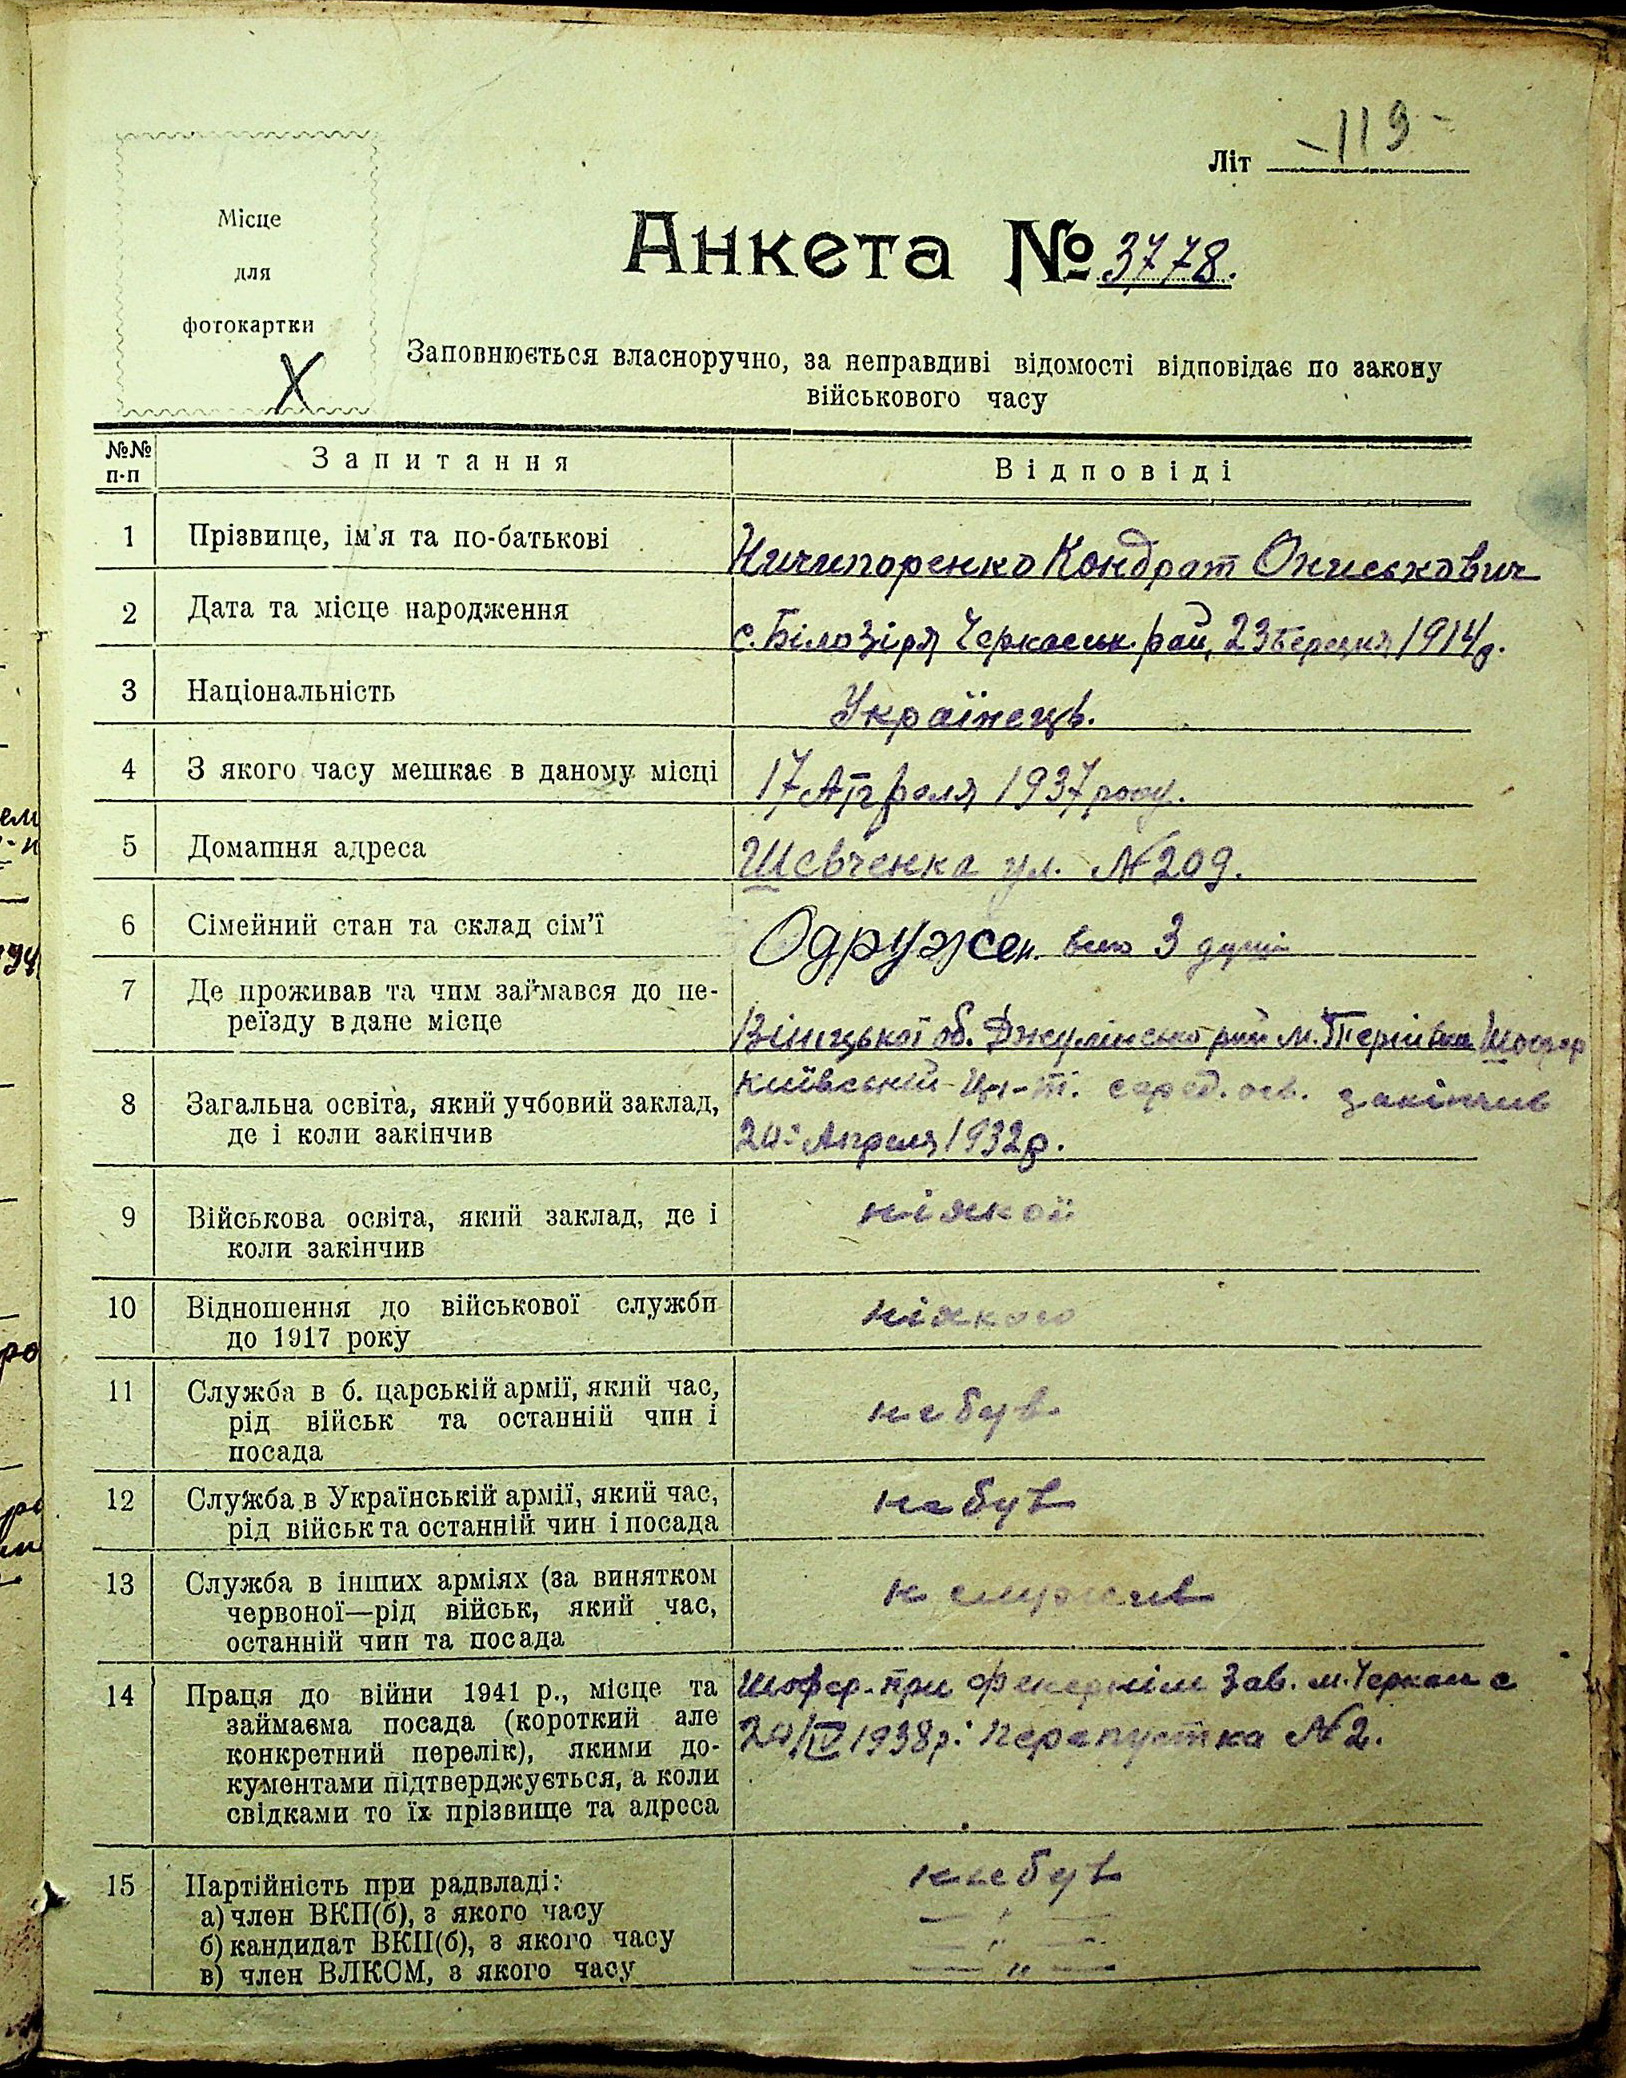 Літ -119-
Місце
для
фотокартки
X
Анкета № 3778.
Заповнюється власноручно, за неправдиві відомості відповідає по закону
військового часу
№№
п-п
Запитання
Відповіді
1 Прізвище, ім'я та по-батькові
Ничипоренко Кондрат Ониськович
2 Дата та місце народження
с. Білозіря Черкаськ. рай, 23 березня 1914 р.
3 Національність
Українець.
4 З якого часу мешкає в даному місці
17 Апреля 1937 року.
5 Домашня адреса
Шевченка ул. № 209.
6 Сімейний стан та склад сім'ї
Одружен. 3 душі
7 Де проживав та чим займався до пе-
реїзду в дане місце
Вініцької об. Джулінсько рай м. Шофер
8 Загальна освіта, який учбовий заклад,
де і коли закінчив
Київський серед. осв. закінчив
20 Апреля 1932 р.
9 Військова освіта, який заклад, де і
коли закінчив
ніякої
10 Відношення до військової служби
до 1917 року
ніякого
11 Служба в б. царській армії, який час,
рід військ та останній чин і
посада
не був
12 Служба в Українській армії, який час,
рід військ та останній чин і посада
не був
13 Служба в інших арміях (за винятком
червоної—рід військ, який час,
останній чин та посада
н служив
14 Праця до війни 1941 р., місце та
займаєма посада (короткий але
конкретний перелік), якими до-
кументами підтверджується, а коли
свідками то їх прізвище та адреса
Шофер. при зав. м. Черкаси с
20/IV 1938 р. перепустка № 2.
15 Партійність при радвладі:
а) член ВКП(б), з якого часу
б) кандидат ВКП(б), з якого часу
в) член ВЛКСМ, з якого часу
не був
— " —
— " —
— " —